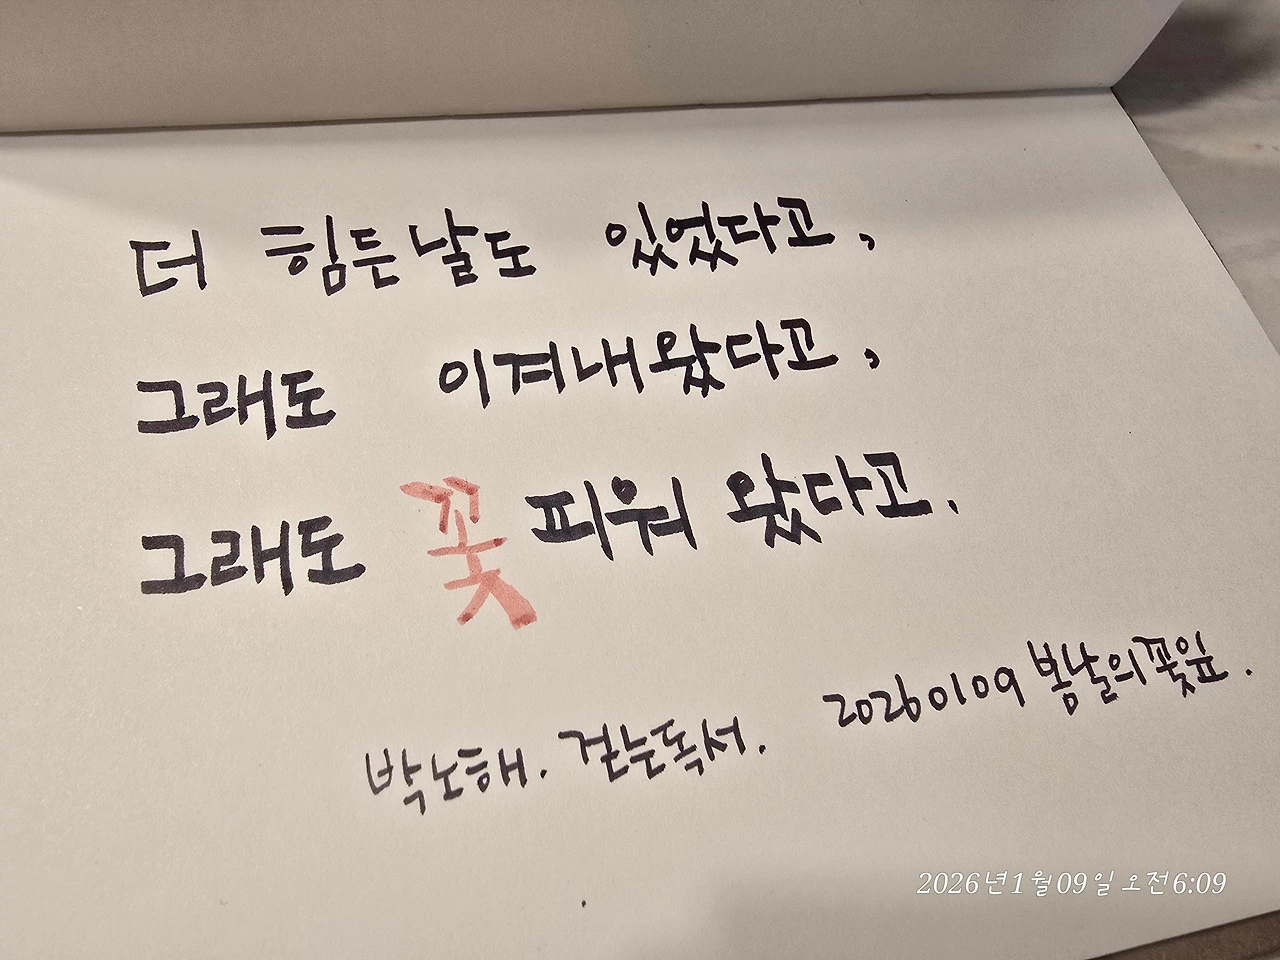 더 힘든날도 있었다고,
그래도 이겨내왔다고,
그래도 꽃 피워 왔다고.
20260109 봄날의꽃잎.
박노해. 걷는독서.
2026년1월09일 오전6:09